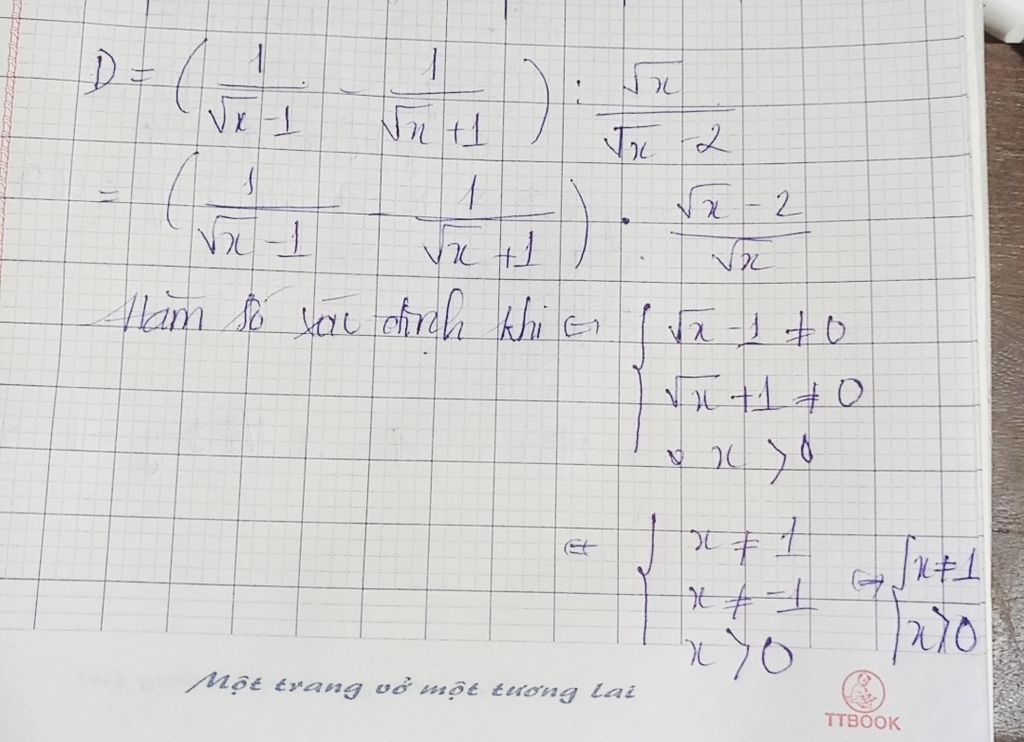 D = ( 1/(√x - 1) - 1/(√x + 1) ) : √x/(√x - 2)
= ( 1/(√x - 1) - 1/(√x + 1) ) . (√x - 2)/√x
Hàm số xác định khi ⇔ { √x - 1 ≠ 0
√x + 1 ≠ 0
x > 0
⇔ { x ≠ 1
x ≠ -1
x > 0
⇔ { x ≠ 1
x > 0
Một trang vở một tương lai
TTBOOK